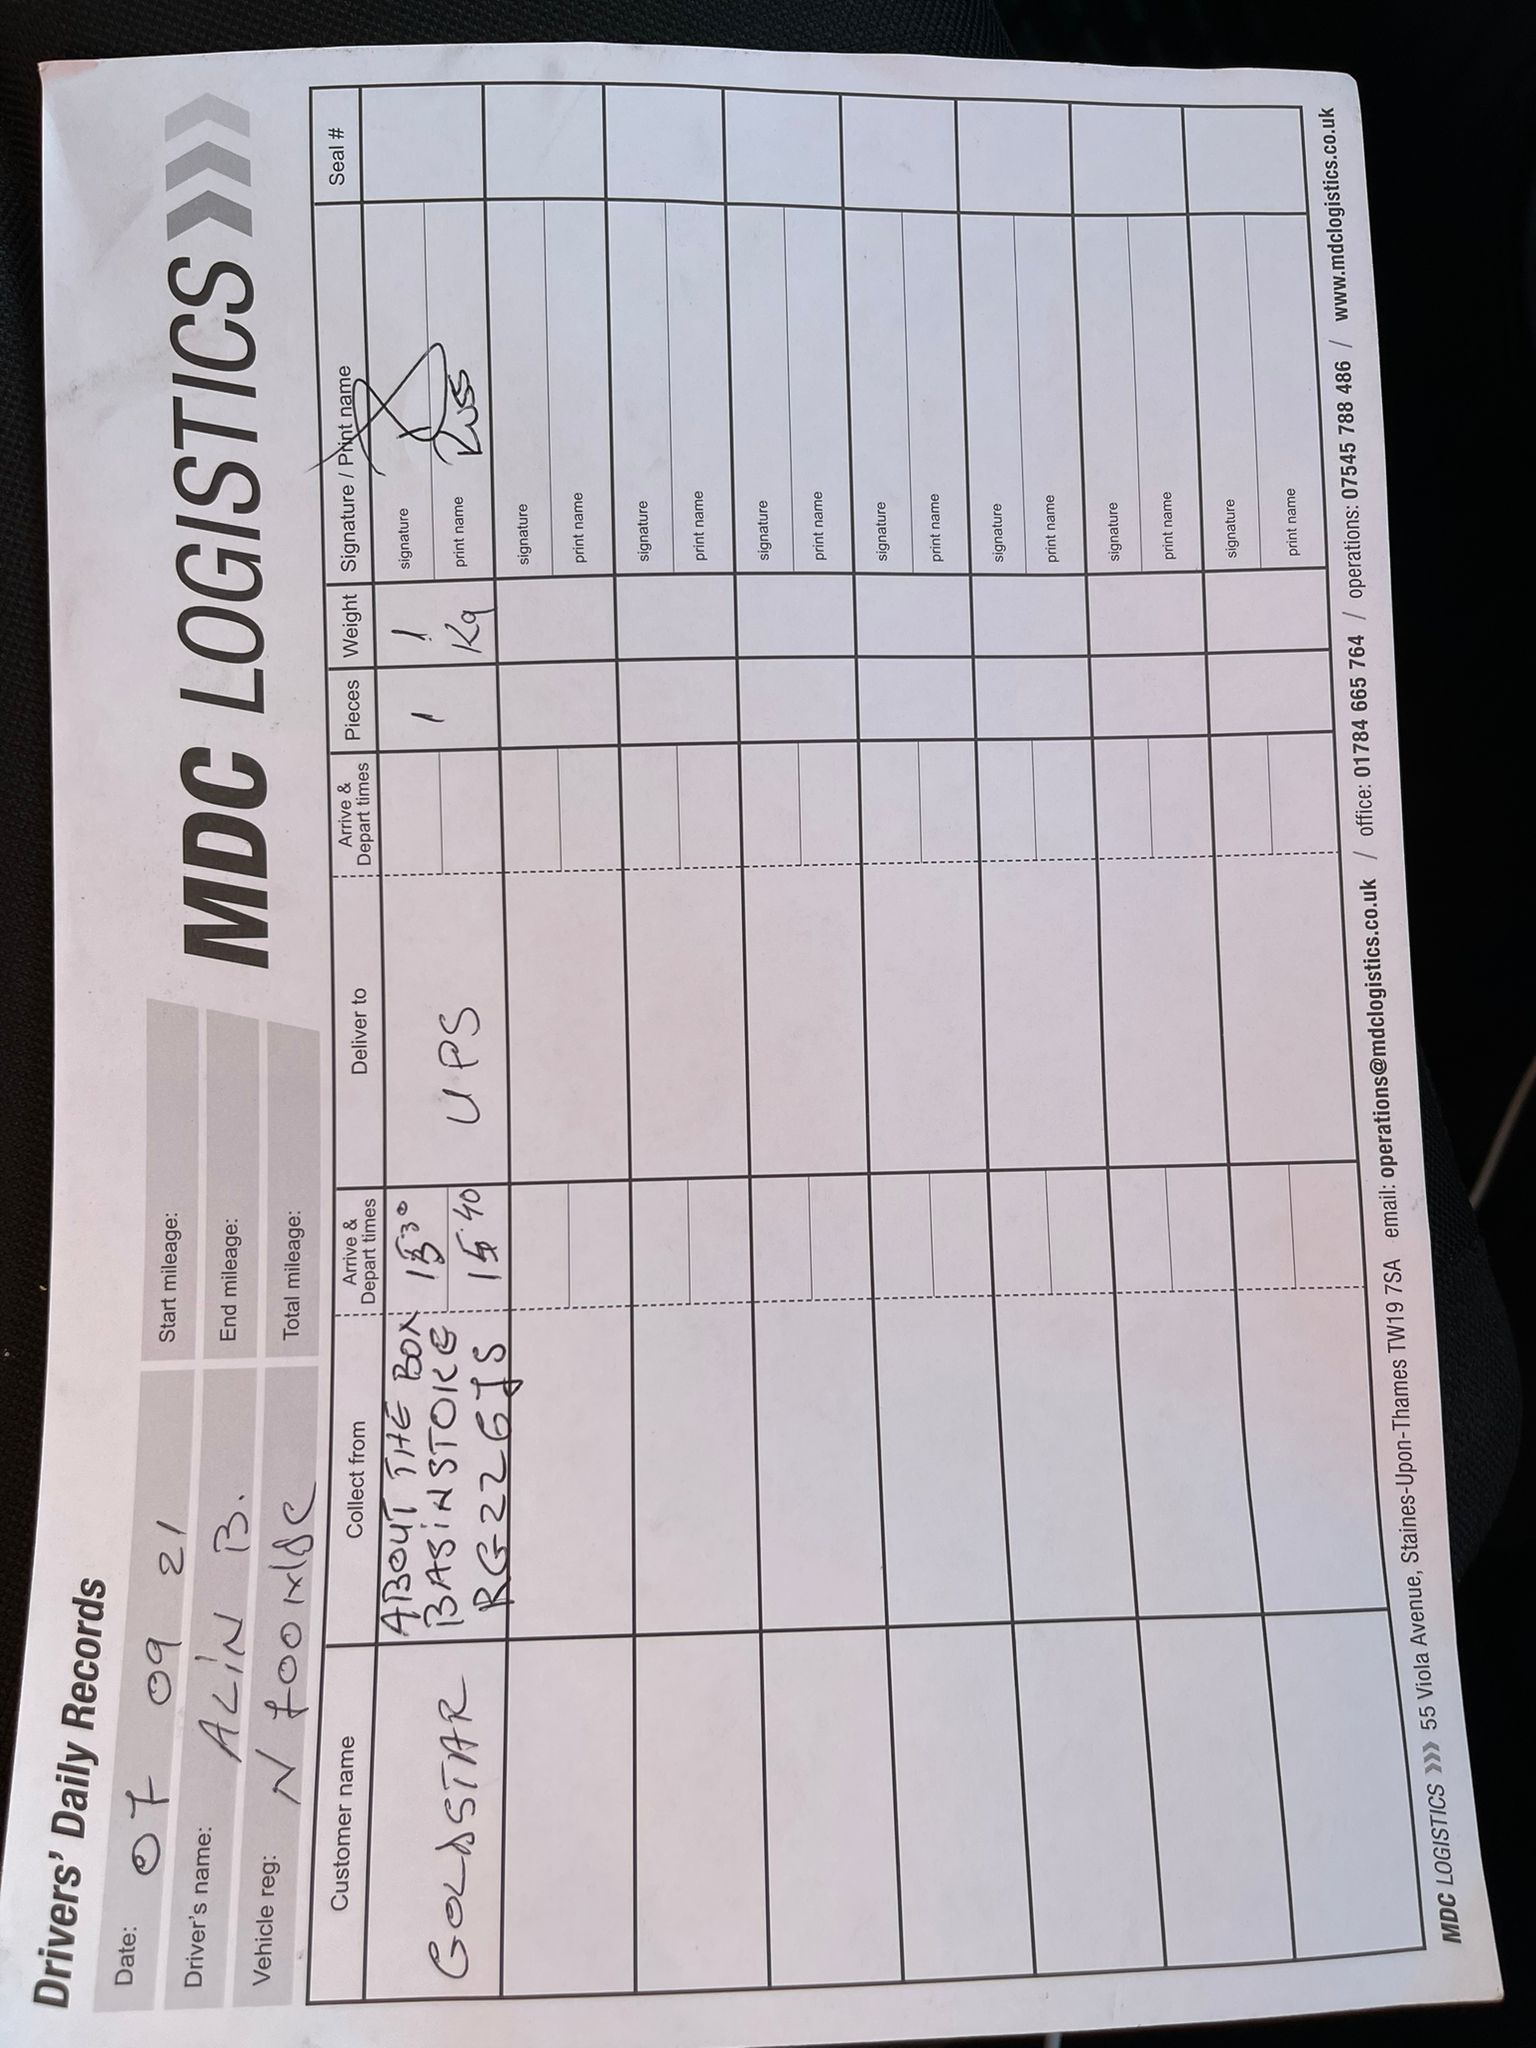 Drivers' Daily Records
MDC LOGISTICS
Date: 07 09 21
Start mileage:
Driver's name: ALIN B.
End mileage:
Vehicle reg:
Total mileage:
Customer name Collect from Arrive & Depart times Deliver to Arrive & Depart times Pieces Weight Signature / Print name Seal #
GOLDSTAR
ABOUT THE BOX
BASINSTOKE
RG22 6JS
15:30
15:40
UPS
1
1
Kg
signature
print name Russ
signature
print name
signature
print name
signature
print name
signature
print name
signature
print name
signature
print name
signature
print name
MDC LOGISTICS >>> 55 Viola Avenue, Staines-Upon-Thames TW19 7SA email: operations@mdclogistics.co.uk / office: 01784 665 764 / operations: 07545 788 486 / www.mdclogistics.co.uk